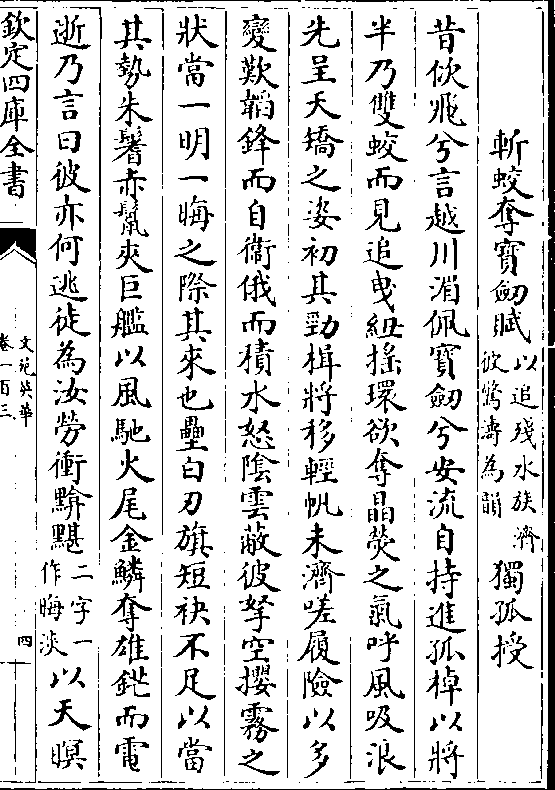 斬蛟奪寶劒賦 以追殘水族濟
彼驚濤為韻 獨孤授
昔佽飛兮言越川湄佩寶劒兮安流自持進孤棹以將
半乃雙蛟而見追曳紐揺環欲奪晶熒之氣呼風吸浪
先呈夭矯之姿初其勁楫將移輕帆未濟嗟履險以多
變歎韜鋒而自衞俄而積水怒隂雲蔽彼拏空攖霧之
狀當一明一晦之際其來也壘白刃旗短袂不足以當
其勢朱鬐赤鬛夾巨艦以風馳火尾金鱗奪雄鋩而電
逝乃言曰彼亦何逃徒為汝勞衝黭黮 二字一
作晦淡 以天暝
欽定四庫全書
文苑英華
卷一百三
四